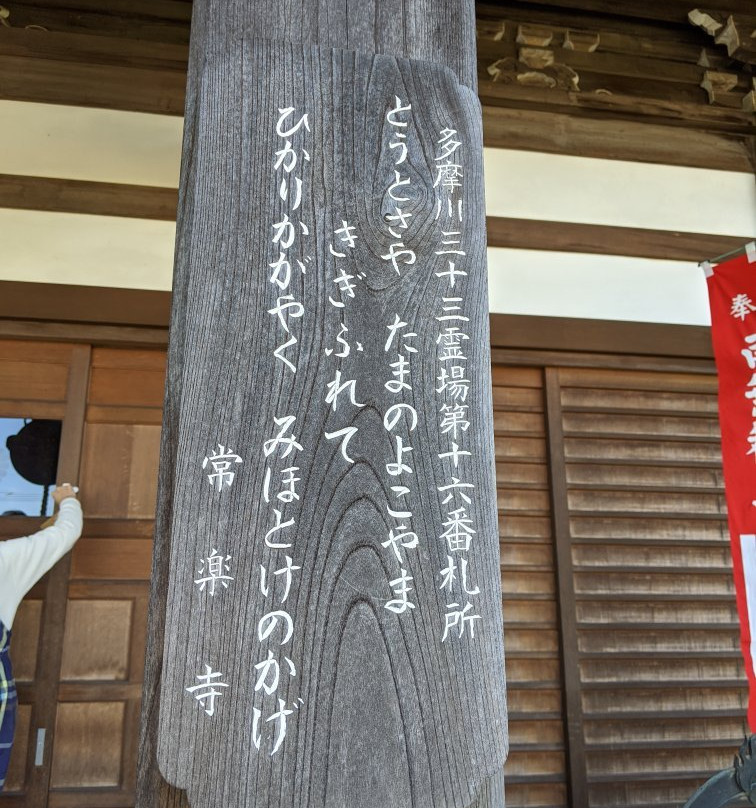 多摩川三十三霊場第十六番札所
とうとさや　たまのよこやま
きぎふれて
ひかりかがやく　みほとけのかげ
常楽寺
奉